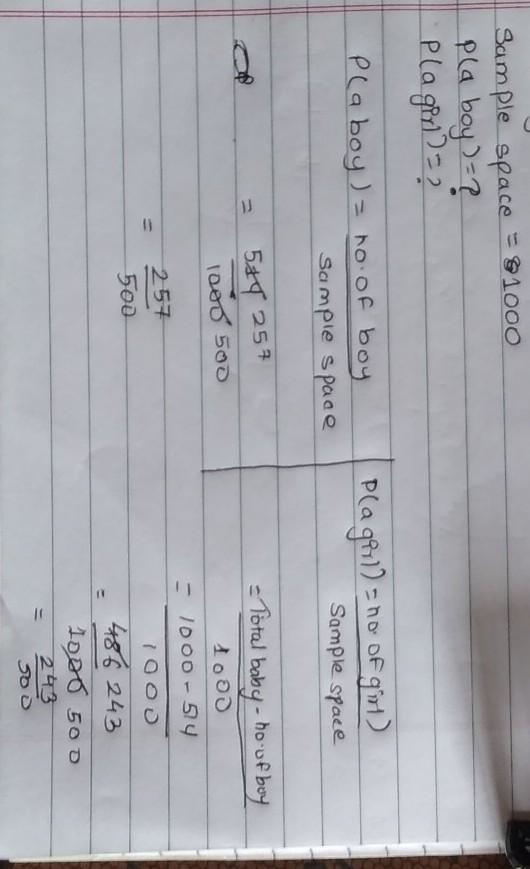 Sample space = 1000
P(a boy) = ?
P(a girl) = ?
P(a boy) = no. of boy
Sample space
= 514 257
1000 500
= 257
500
P(a girl) = no. of girl)
Sample space
= Total baby - no. of boy
1000
= 1000 - 514
1000
= 486 243
1000 500
= 243
500